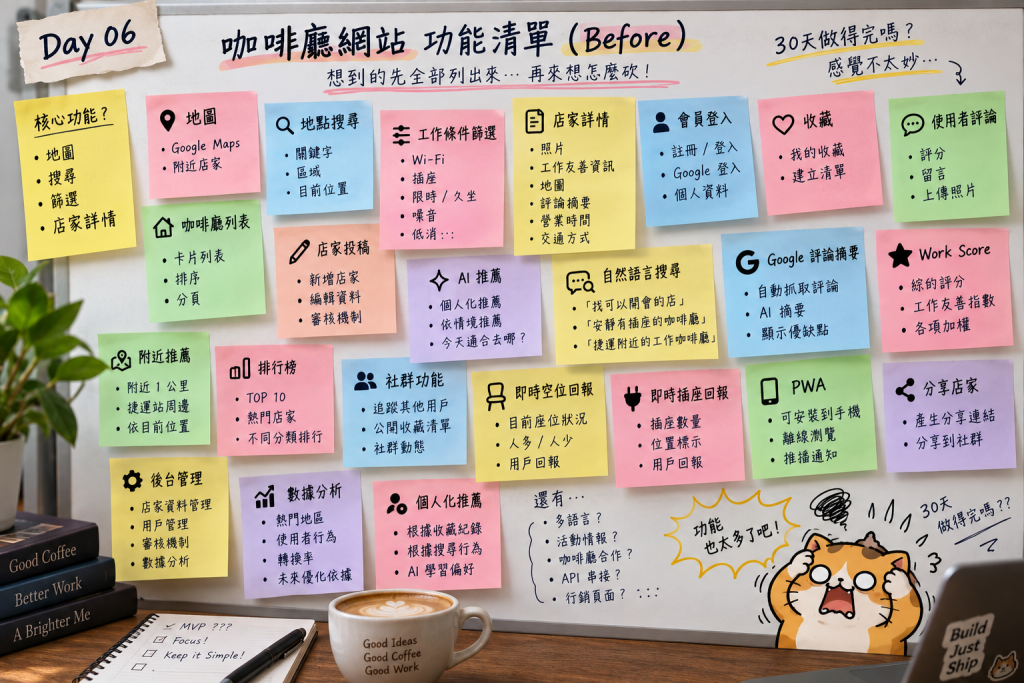 Day 06
咖啡廳網站 功能清單 (Before)
想到的先全部列出來… 再來想怎麼砍！
30天做得完嗎？
感覺不太妙…
核心功能？
• 地圖
• 搜尋
• 篩選
• 店家詳情
地圖
• Google Maps
• 附近店家
地點搜尋
• 關鍵字
• 區域
• 目前位置
工作條件篩選
• Wi-Fi
• 插座
• 限時 / 久坐
• 噪音
• 低消
店家詳情
• 照片
• 工作友善資訊
• 地圖
• 評論摘要
• 營業時間
• 交通方式
會員登入
• 註冊 / 登入
• Google 登入
• 個人資料
收藏
• 我的收藏
• 建立清單
使用者評論
• 評分
• 留言
• 上傳照片
咖啡廳列表
• 卡片列表
• 排序
• 分頁
店家投稿
• 新增店家
• 編輯資料
• 審核機制
AI 推薦
• 個人化推薦
• 依情境推薦
• 今天適合去哪？
自然語言搜尋
• 「找可以開會的店」
• 「安靜有插座的咖啡廳」
• 「捷運附近的工作咖啡廳」
Google 評論摘要
• 自動抓取評論
• AI 摘要
• 顯示優缺點
Work Score
• 綜的評分
• 工作友善指數
• 各項加權
附近推薦
• 附近 1 公里
• 捷運站周邊
• 依目前位置
排行榜
• TOP 10
• 熱門店家
• 不同分類排行
社群功能
• 追蹤其他用戶
• 公開收藏清單
• 社群動態
即時空位回報
• 目前座位狀況
• 人多 / 人少
• 用戶回報
即時插座回報
• 插座數量
• 位置標示
• 用戶回報
PWA
• 可安裝到手機
• 離線瀏覽
• 推播通知
分享店家
• 產生分享連結
• 分享到社群
後台管理
• 店家資料管理
• 用戶管理
• 審核機制
• 數據分析
數據分析
• 熱門地區
• 使用者行為
• 轉換率
• 未來優化依據
個人化推薦
• 根據收藏紀錄
• 根據搜尋行為
• AI 學習偏好
還有…
• 多語言？
• 活動情報？
• 咖啡廳合作？
• API 串接？
• 行銷頁面？
功能
也太多了吧！
30天
做得完嗎??
Good Coffee
Better Work
A Brighter Me
MVP ???
Focus!
Keep it Simple!
Good Ideas
Good Coffee
Good Work
Build
Just
Ship